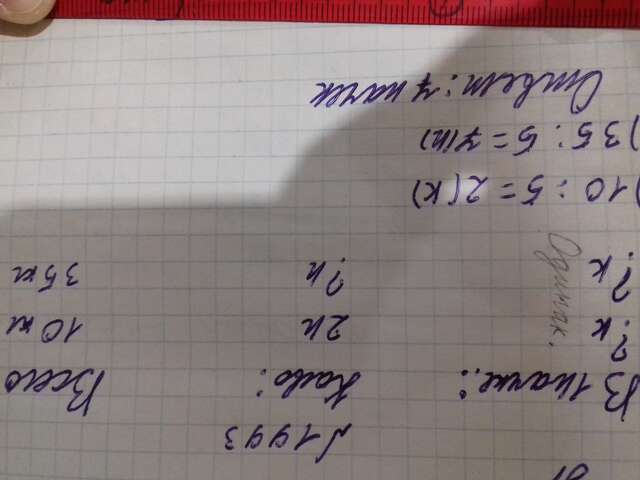 №1993
В 1 пачке: Колво: Всего
? к 2п 10 кг
? к ? п 35 кг
Одинак.
) 10 : 5 = 2 ( к )
) 35 : 5 = 7 (п)
Ответ: 7 пачек